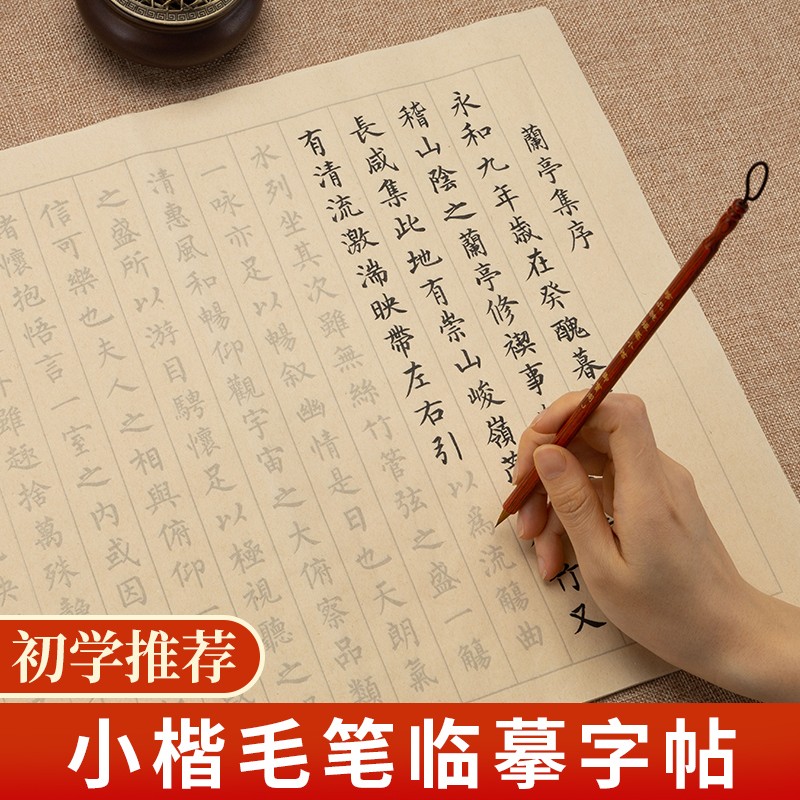 蘭亭集序
永和九年歲在癸醜暮
稽山陰之蘭亭修禊事
竹又
長咸集此地有崇山峻嶺茂
有清流激湍映帶左右引以爲流觴曲
水列坐其次雖無絲竹管弦之盛一觴
一咏亦足以暢叙幽情是日也天朗氣
清惠風和暢仰觀宇宙之大俯察品類
之盛所以游目騁懷足以極視聽之
信可樂也夫人之相與俯仰一
懷抱悟言一室之内或因
雖趣捨萬殊静
初学推荐
小楷毛笔临摹字帖